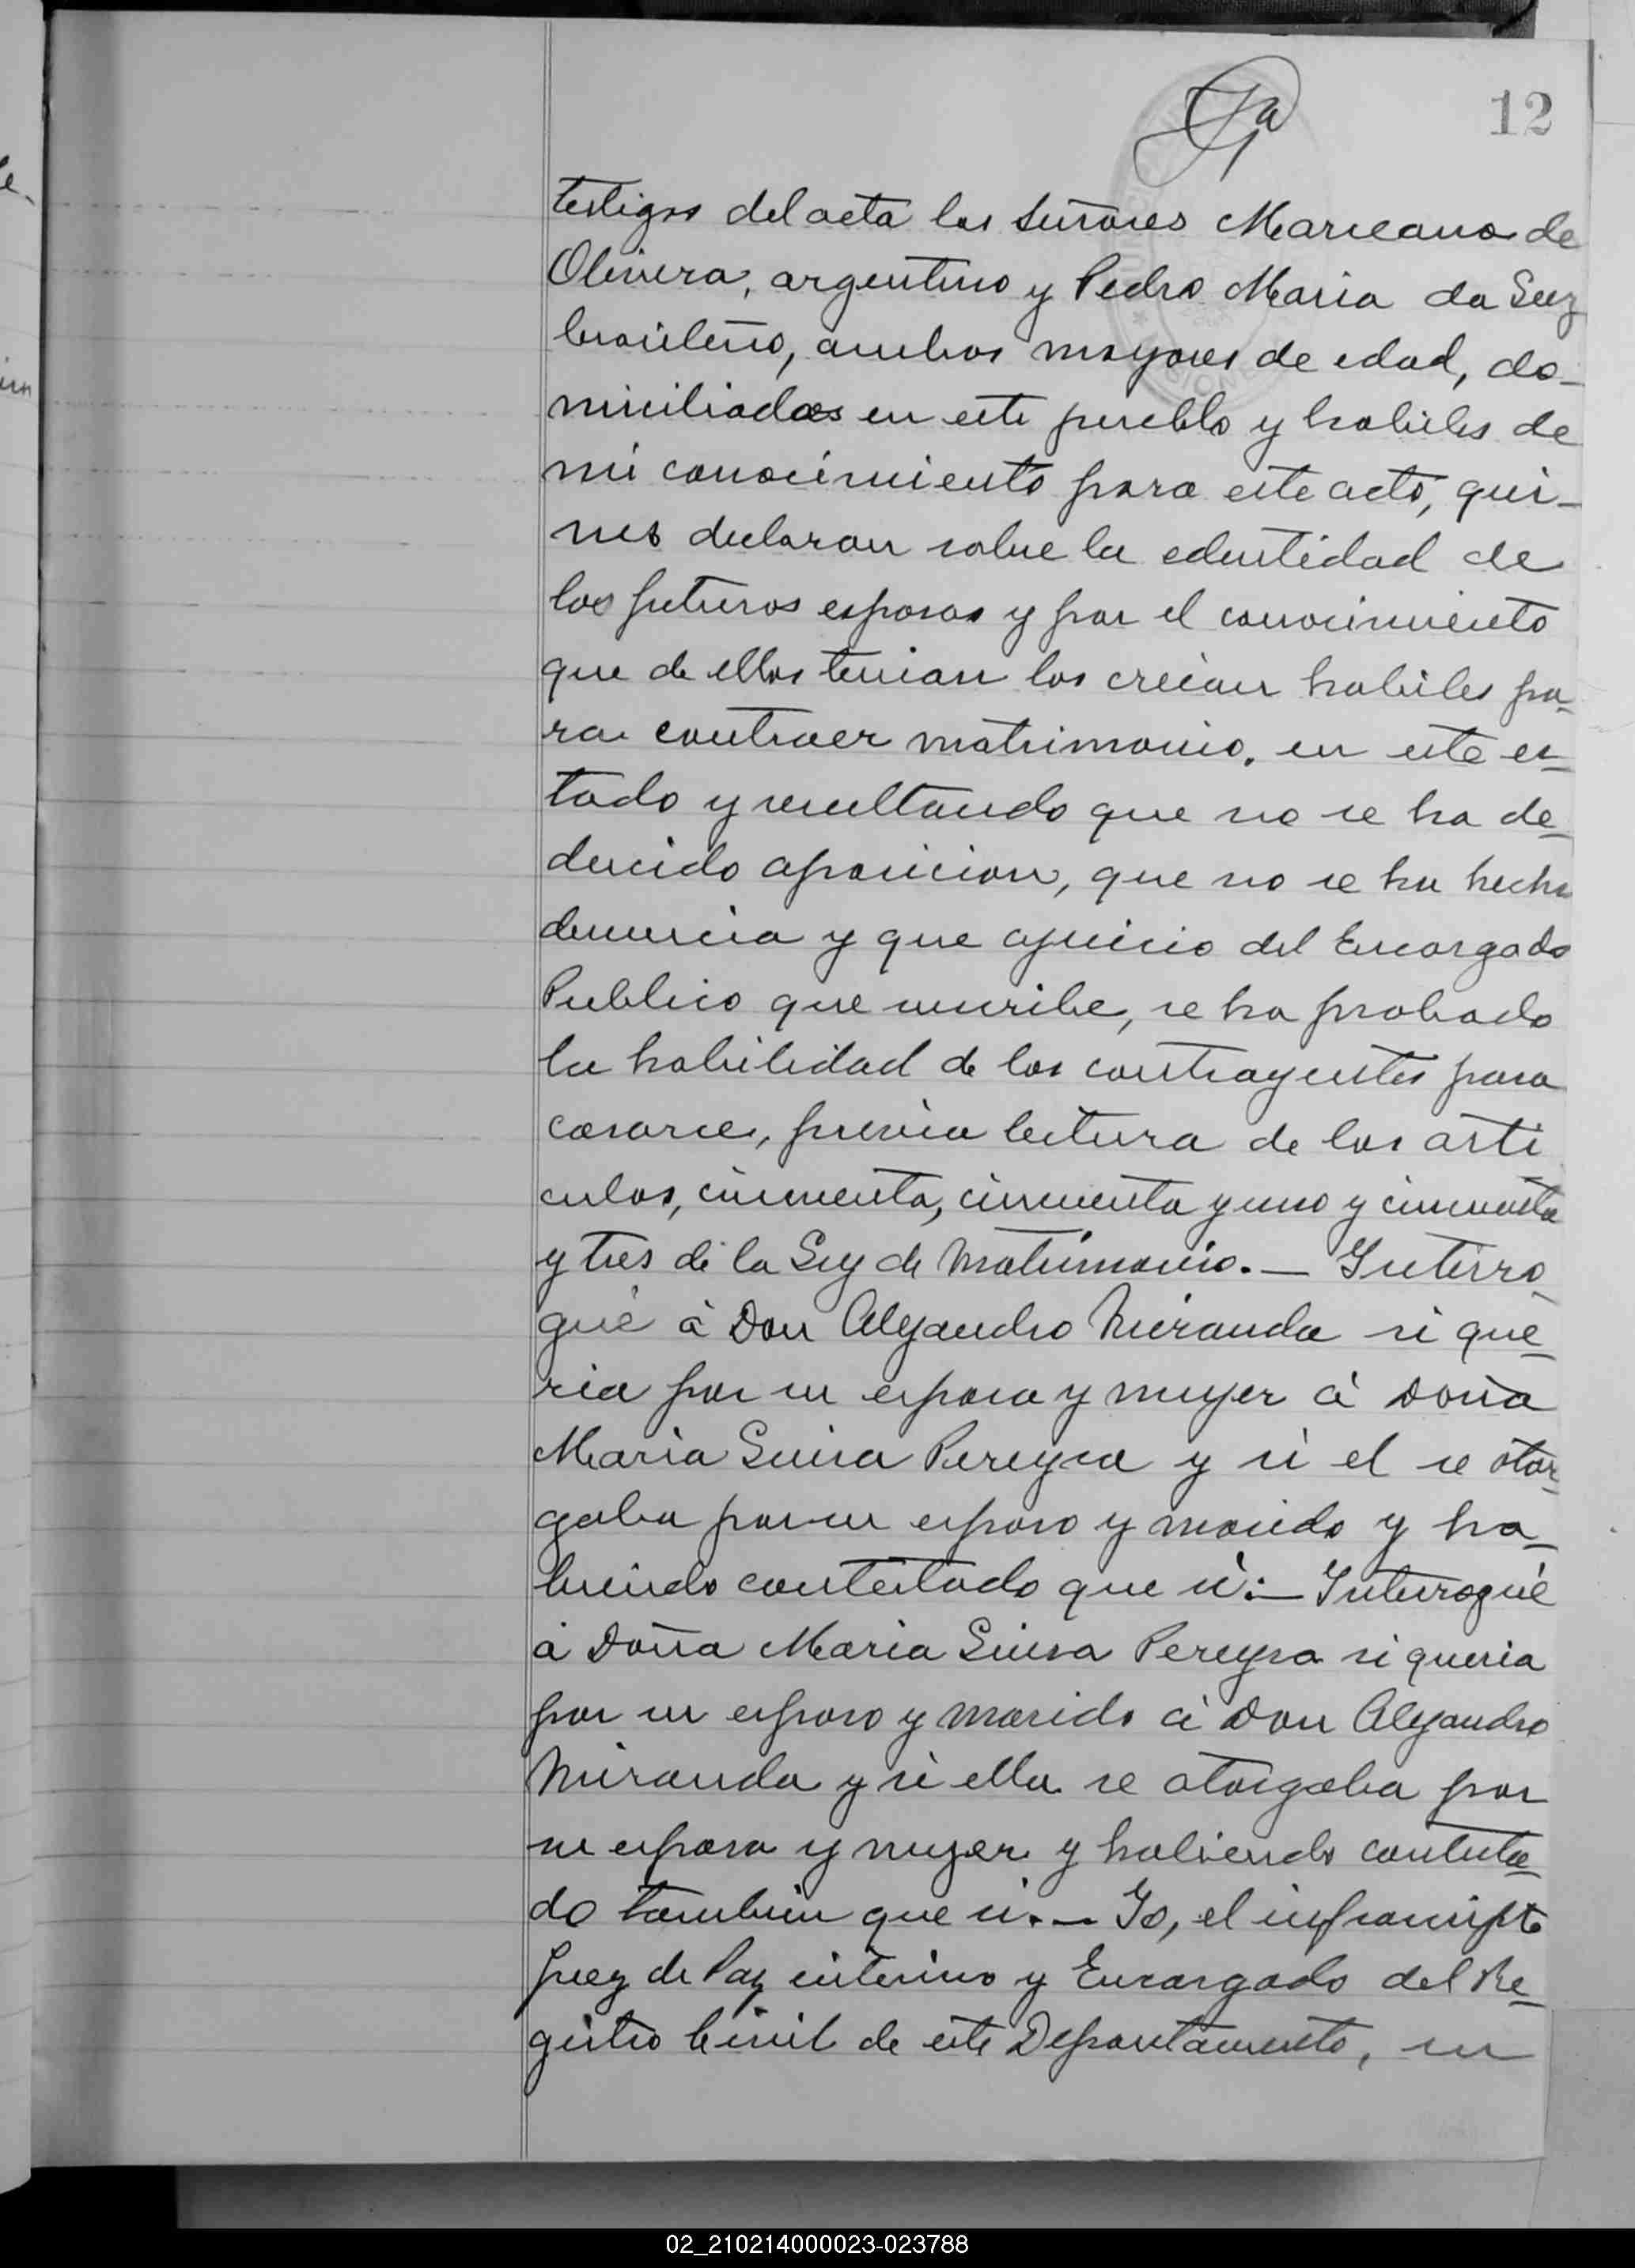 12
testigos del acta los Señores Marceano de
Olivera, argentino y Pedro Maria da Luz
brasileño, ambos mayores de edad, do-
miciliados en este pueblo y habiles de
mi conocimiento para este acto, qui-
nes declaran sobre la edentidad de
los futuros esposos y por el conocimiento
que de ellos tenian los creian habiles pa-
ra contraer matrimonio. en este es-
tado y resultando que no se ha de-
ducido oposicion, que no se ha hecho
denuncia y que ajuicio del Encargado
Publico que suscribe, se ha probado
la habilidad de los contrayentes para
casarse, previa lectura de los arti
culos, cincuenta, cincuenta y uno y cincuenta
y tres de la Ley de Matrimonio. — Interro-
gué á Don Alejandro Miranda si que-
ria por su esposa y mujer á Doña
Maria Luisa Pereyra y si el se otor-
gaba por su esposo y marido y ha-
biendo contestado que si: — Interrogué
á Doña Maria Luisa Pereyra si queria
por su esposo y marido á Don Alejandro
Miranda y si ella se otorgaba por
su esposa y mujer y habiendo contesta-
do tambien que si. — Yo, el infrascripto
Juez de Paz interino y Encargado del Re-
gistro Civil de este Departamento, en
02_210214000023-023788